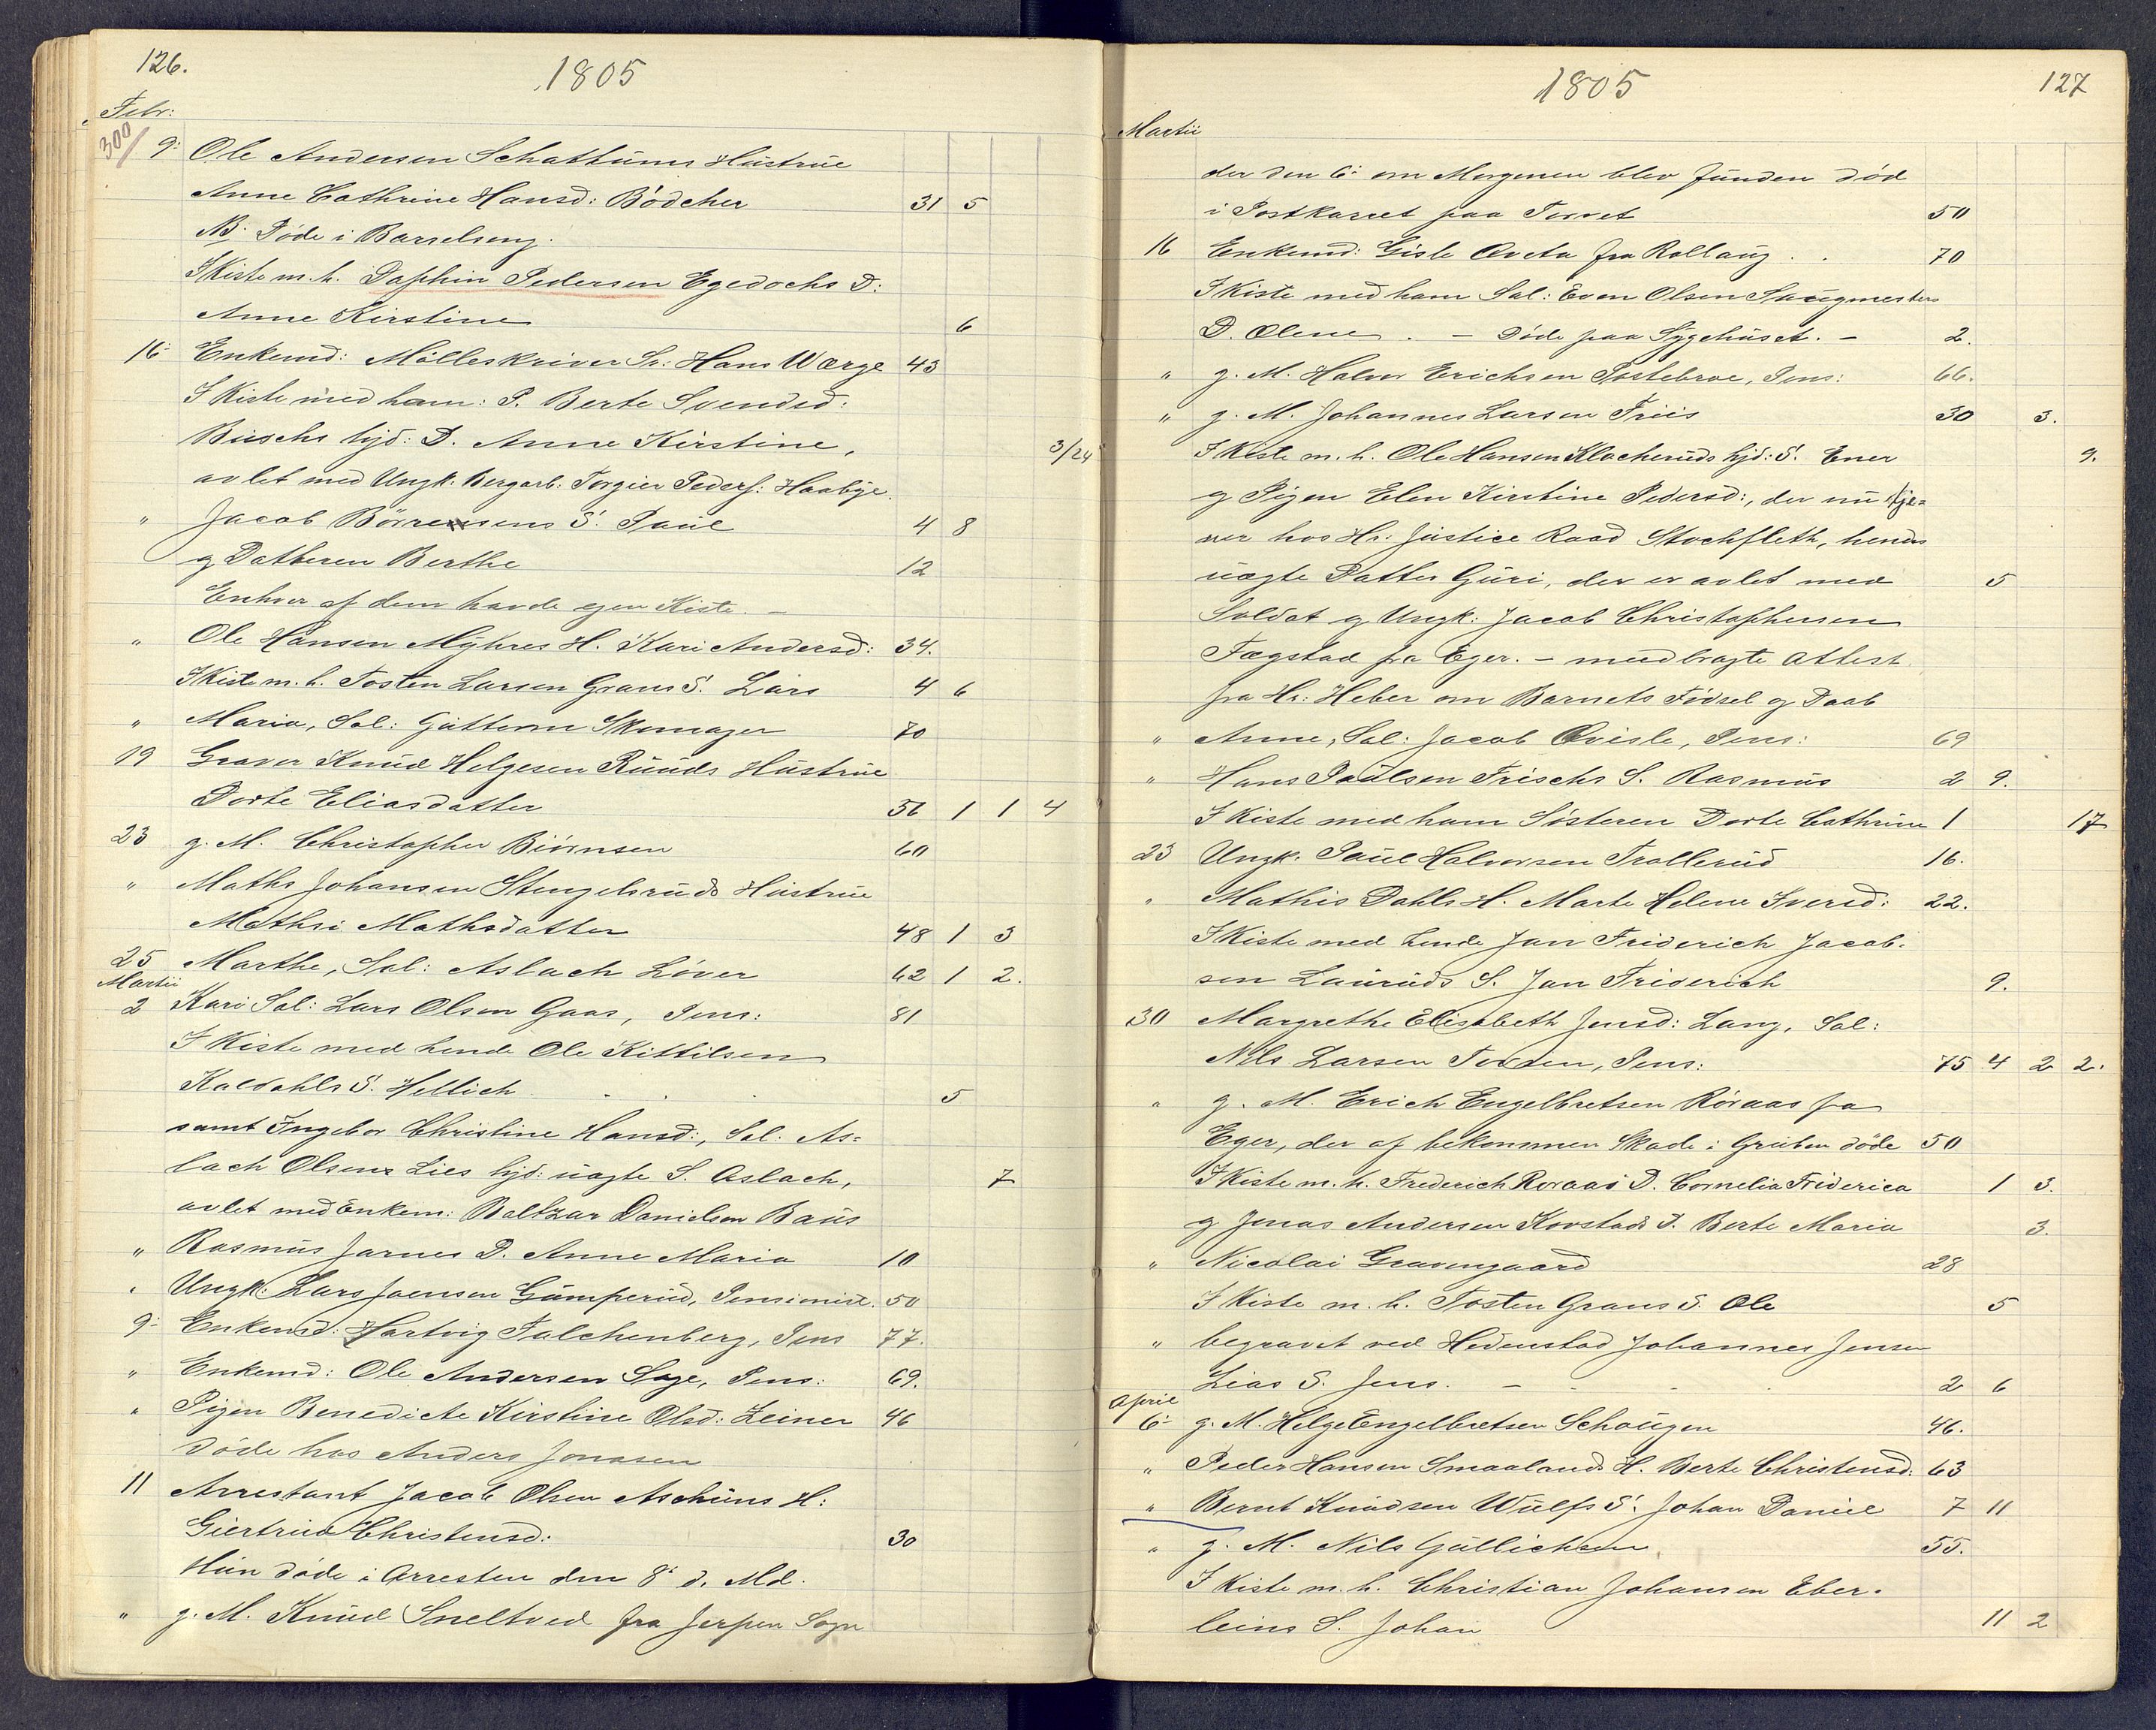 126.
1805
Febr:
300/
9: Ole Andersen Schattums Hustrue
Anne Cathrine Hansd: Bödcher 31 5
NB. Döde i Barselseng.
I Kiste m. h. Daphin Pedersen Egedochs D:
Anne Kirstine 6
16: Enkemd: Mölleskriver Sr: Hans Wærge 43
I Kiste med ham: P. Berte Svendsd:
Buschs hjd: D. Anne Kirstine, 3/24
avlet med Ungk. Bergarb. Torgier Peders: Haabye.
" Jacob Börresens S. Paul 4 8
g Datteren Berthe 12
Enhver af dem havde egen Kiste. –
" Ole Hansen Myhres H. Kari Andersd: 34.
I Kiste m. h. Tosten Larsen Graus S. Lars 4 6
" Maria, Sal: Guttorm Skomager 70
19 Graver Knud Helgesen Ruuds Hustrue
Dorte Eliasdatter 56 1 1 4
23 g. M. Christopher Biörnsen 60
" Maths Johansen Stengelsruds Hustrue
Mathsi Mathsdatter 48 1 3
25 Marthe, Sal: Aslach Löver 62 1 2.
Martii
2 Kari Sal: Lars Olsen Gaas, Pens: 81
I Kiste med hende Ole Kittilsen
Kaldahls S. Hellich . . . 5
samt Ingebor Christine Hansd:, Sal: As=
lach Olsens Lies hjd: uægte S. Aslach, 7
avlet med Enkem: Baltzar Danielsen Baus
" Rasmus Jarnes D. Anne Maria 10
" Ungk: Lars Joensen Gumperud, Pensionist. 50
9: Enkemd: Hartvig Falchenberg, Pens 77.
" Enkemd: Ole Andersen Sage, Pens: 69.
" Pigen Benedicte Kirstine Olsd: Zeiner 46
döde hos Anders Jonasen
11 Arrestant Jacob Olsen Aschims H:
Giertrud Christensd: 30
Hun döde i Arresten den 8: d. Md.
" g. M. Knud Sneltved fra Jerpen Sogn
1805
127
Martii
der den 6: om Morgenen blev funden död
i Postkarret paa Torvet 50
16 Enkemd: Gisle Qveta fra Rollaug . . 70
I Kiste med ham Sal: Even Olsen Saugmesters
D. Olene . – Döde paa Sygehuset. – 2.
" g. M. Halvor Erichsen Postebroe, Pens: 66.
" g. M. Johannes Larsen Friis 30 3.
I Kiste m. h. Ole Hansen Klocheruds hjd: S. Ener 9.
g Pigen Elen Kirstine Pedersd:, der nu tje=
ner hos Hr. Justice Raad Stochfleth, hendes
uægte Datter Guri, der er avlet med 5
Soldat g Ungk: Jacob Christophersen
Fægstad fra Eger. – medbragte Attest
fra Hr: Heber om Barnets Födsel og Daab
" Anne, Sal: Jacob Qvisle, Pens: 69
" Hans Paulsen Frischs S. Rasmus 2 9.
I Kiste med ham Sösteren Dorte Cathrine 1 17
23 Ungk. Paul Halvorsen Trollerud 16.
" Mathis Dahls H. Marte Helene Iversd: 22.
I Kiste med hende Jan Friderich Jacob.
sen Lauruds S. Jan Friderich 9.
30 Margrethe Elisabeth Jensd: Lang, Sal:
Nils Larsen Torsen, Pens: 75 4 2 2.
" g. M. Erich Engelbretsen Röraas fra
Eger, der af bekommen Skade i Gruben döde 50
I Kiste m. h. Frederich Roraas D. Cornelia Friderica 1 3.
g Jonas Andersen Korstads D. Berte Maria 3.
" Nicolai Gravengaard 28
I Kiste m. h. Tosten Graus S. Ole 5
" begravet ved Hedenstad Johannes Jensen
Lias S. Jens. – . . . 2 6
April
6: g. M. Helge Engelbretsen Schougen 46.
" Peder Hansen Smaalands H. Berte Christensd: 63
" Bernt Knudsen Wulfs S. Johan Daniel 7 11
" g. M. Nils Gullichsen 55.
I Kiste m. h. Christian Johansen Eber.
leins S. Johan 11 2